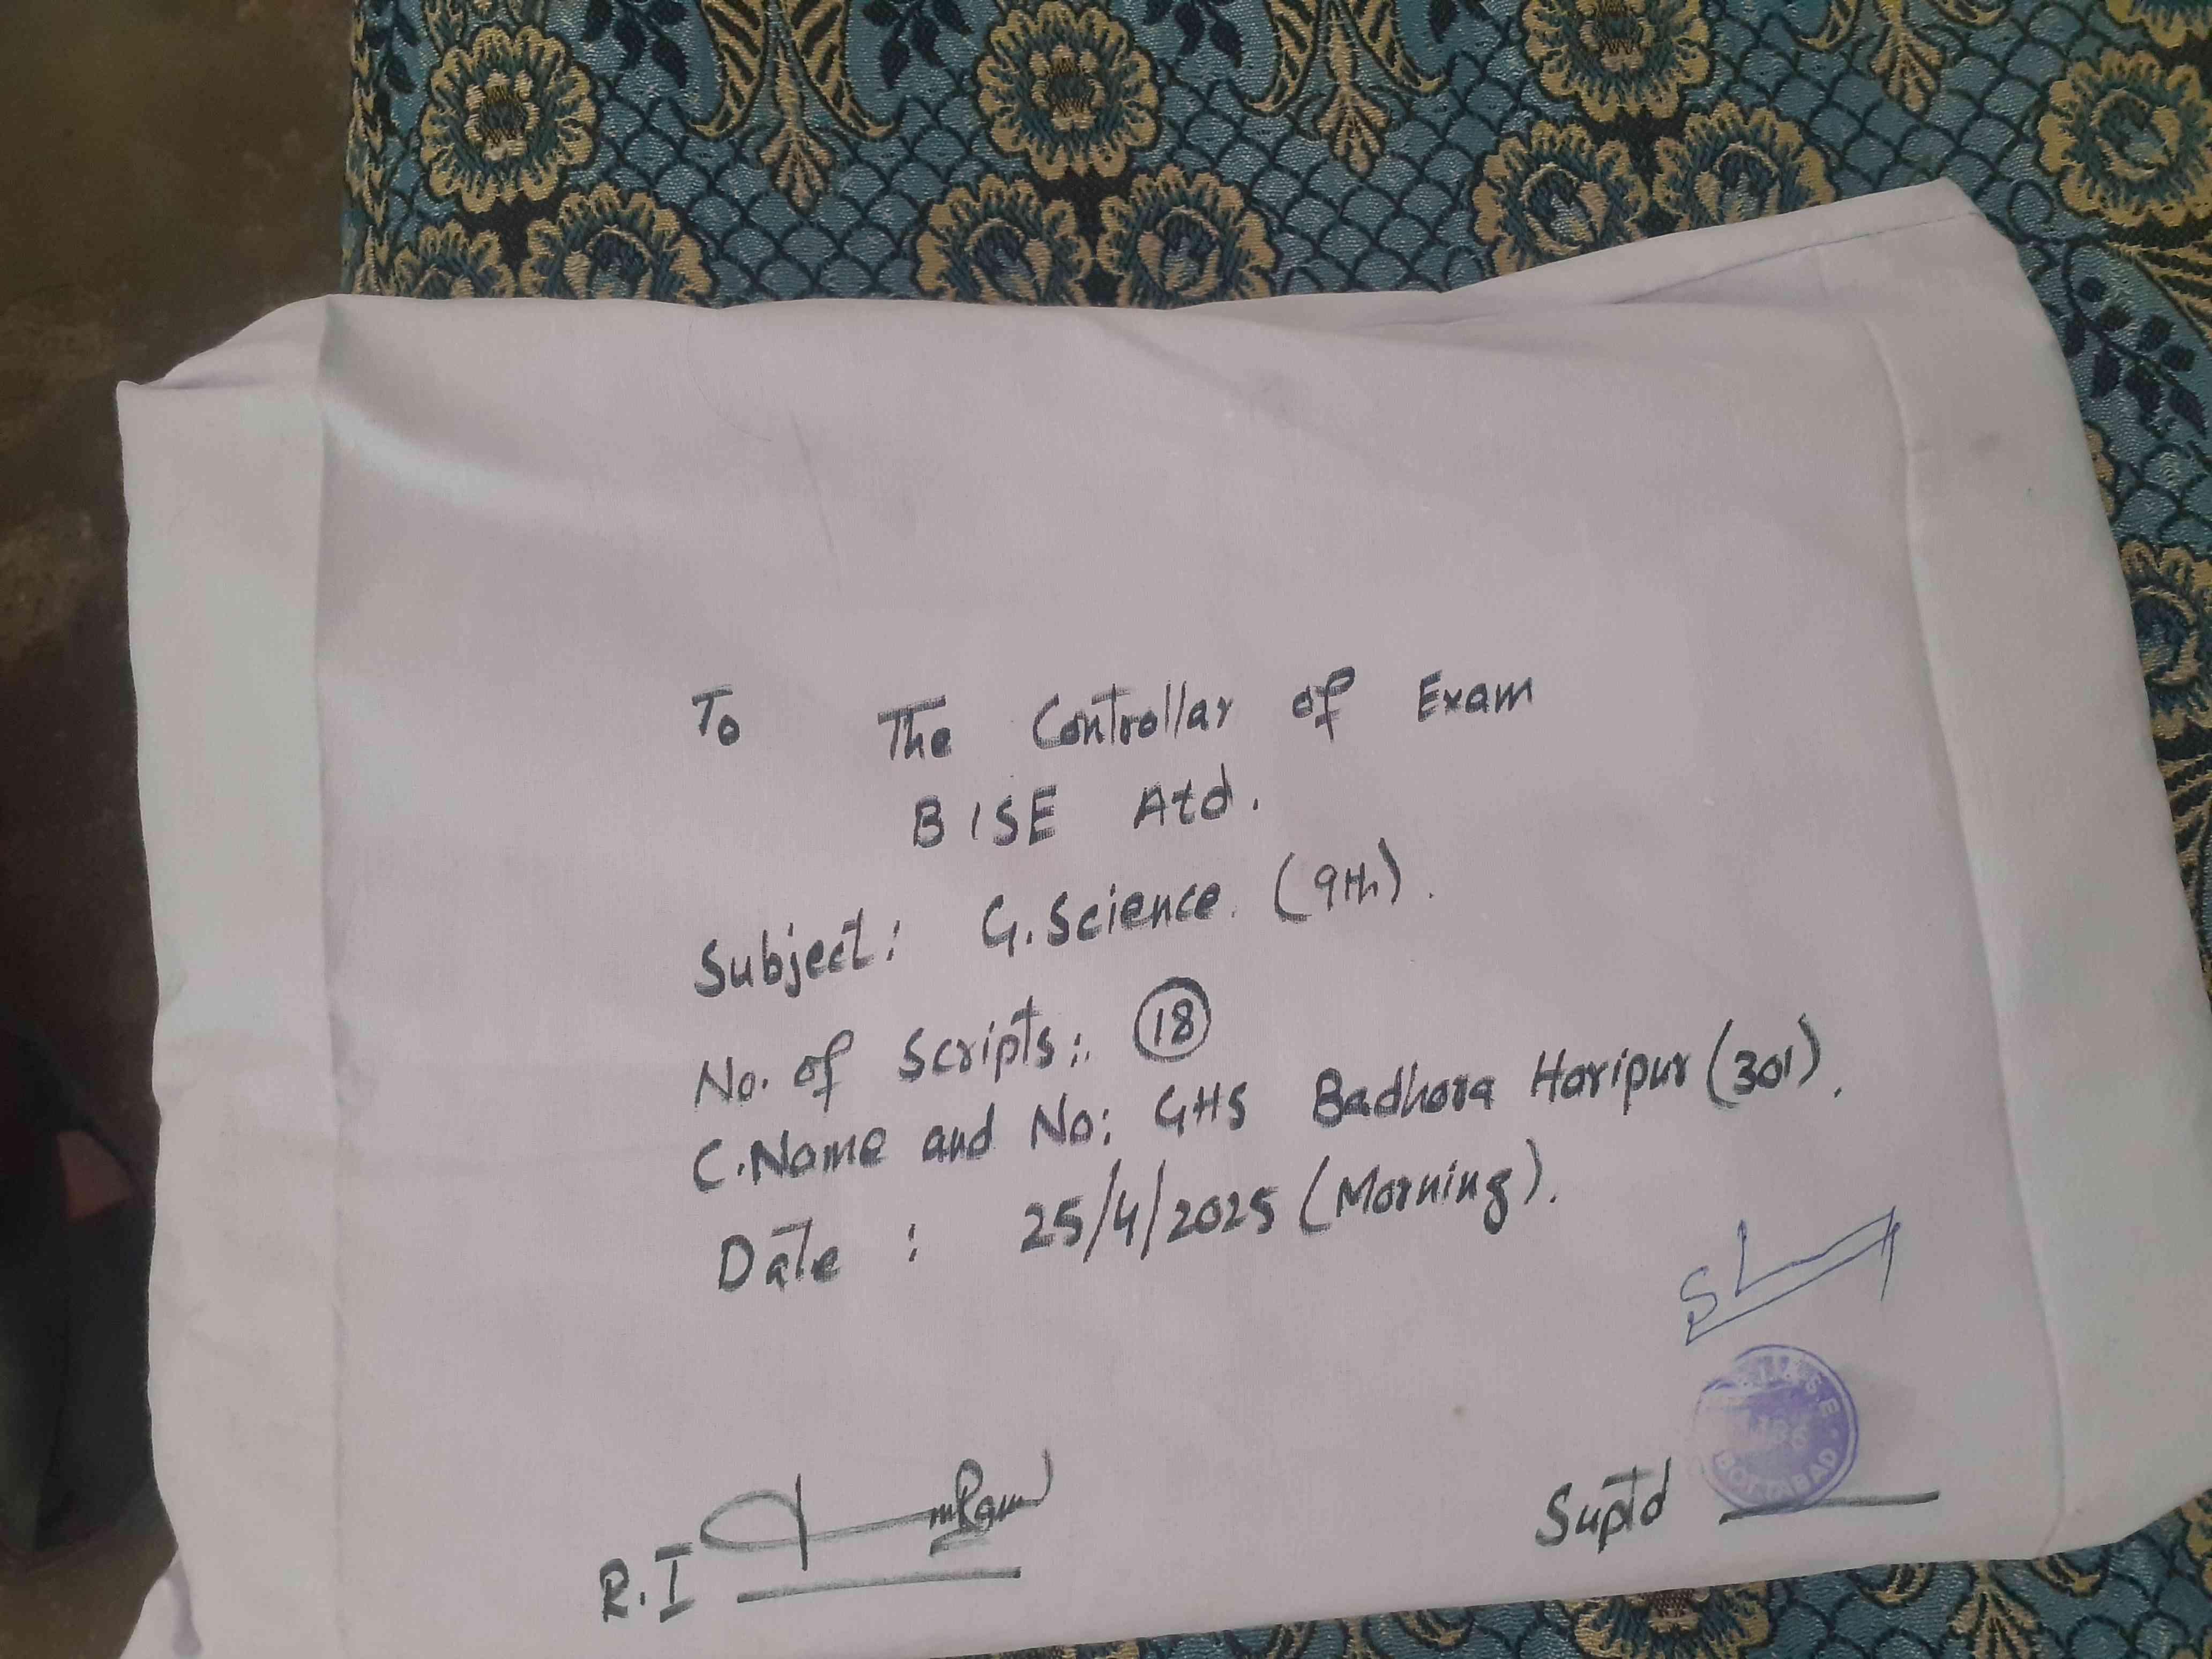 To The Controllar of Exam
BISE Atd.
Subject: G.Science. (9th).
No. of Scripts:. 18
C.Name and No: GHS Badhora Haripur (301).
Date : 25/4/2025 (Morning).
R.I
Suptd